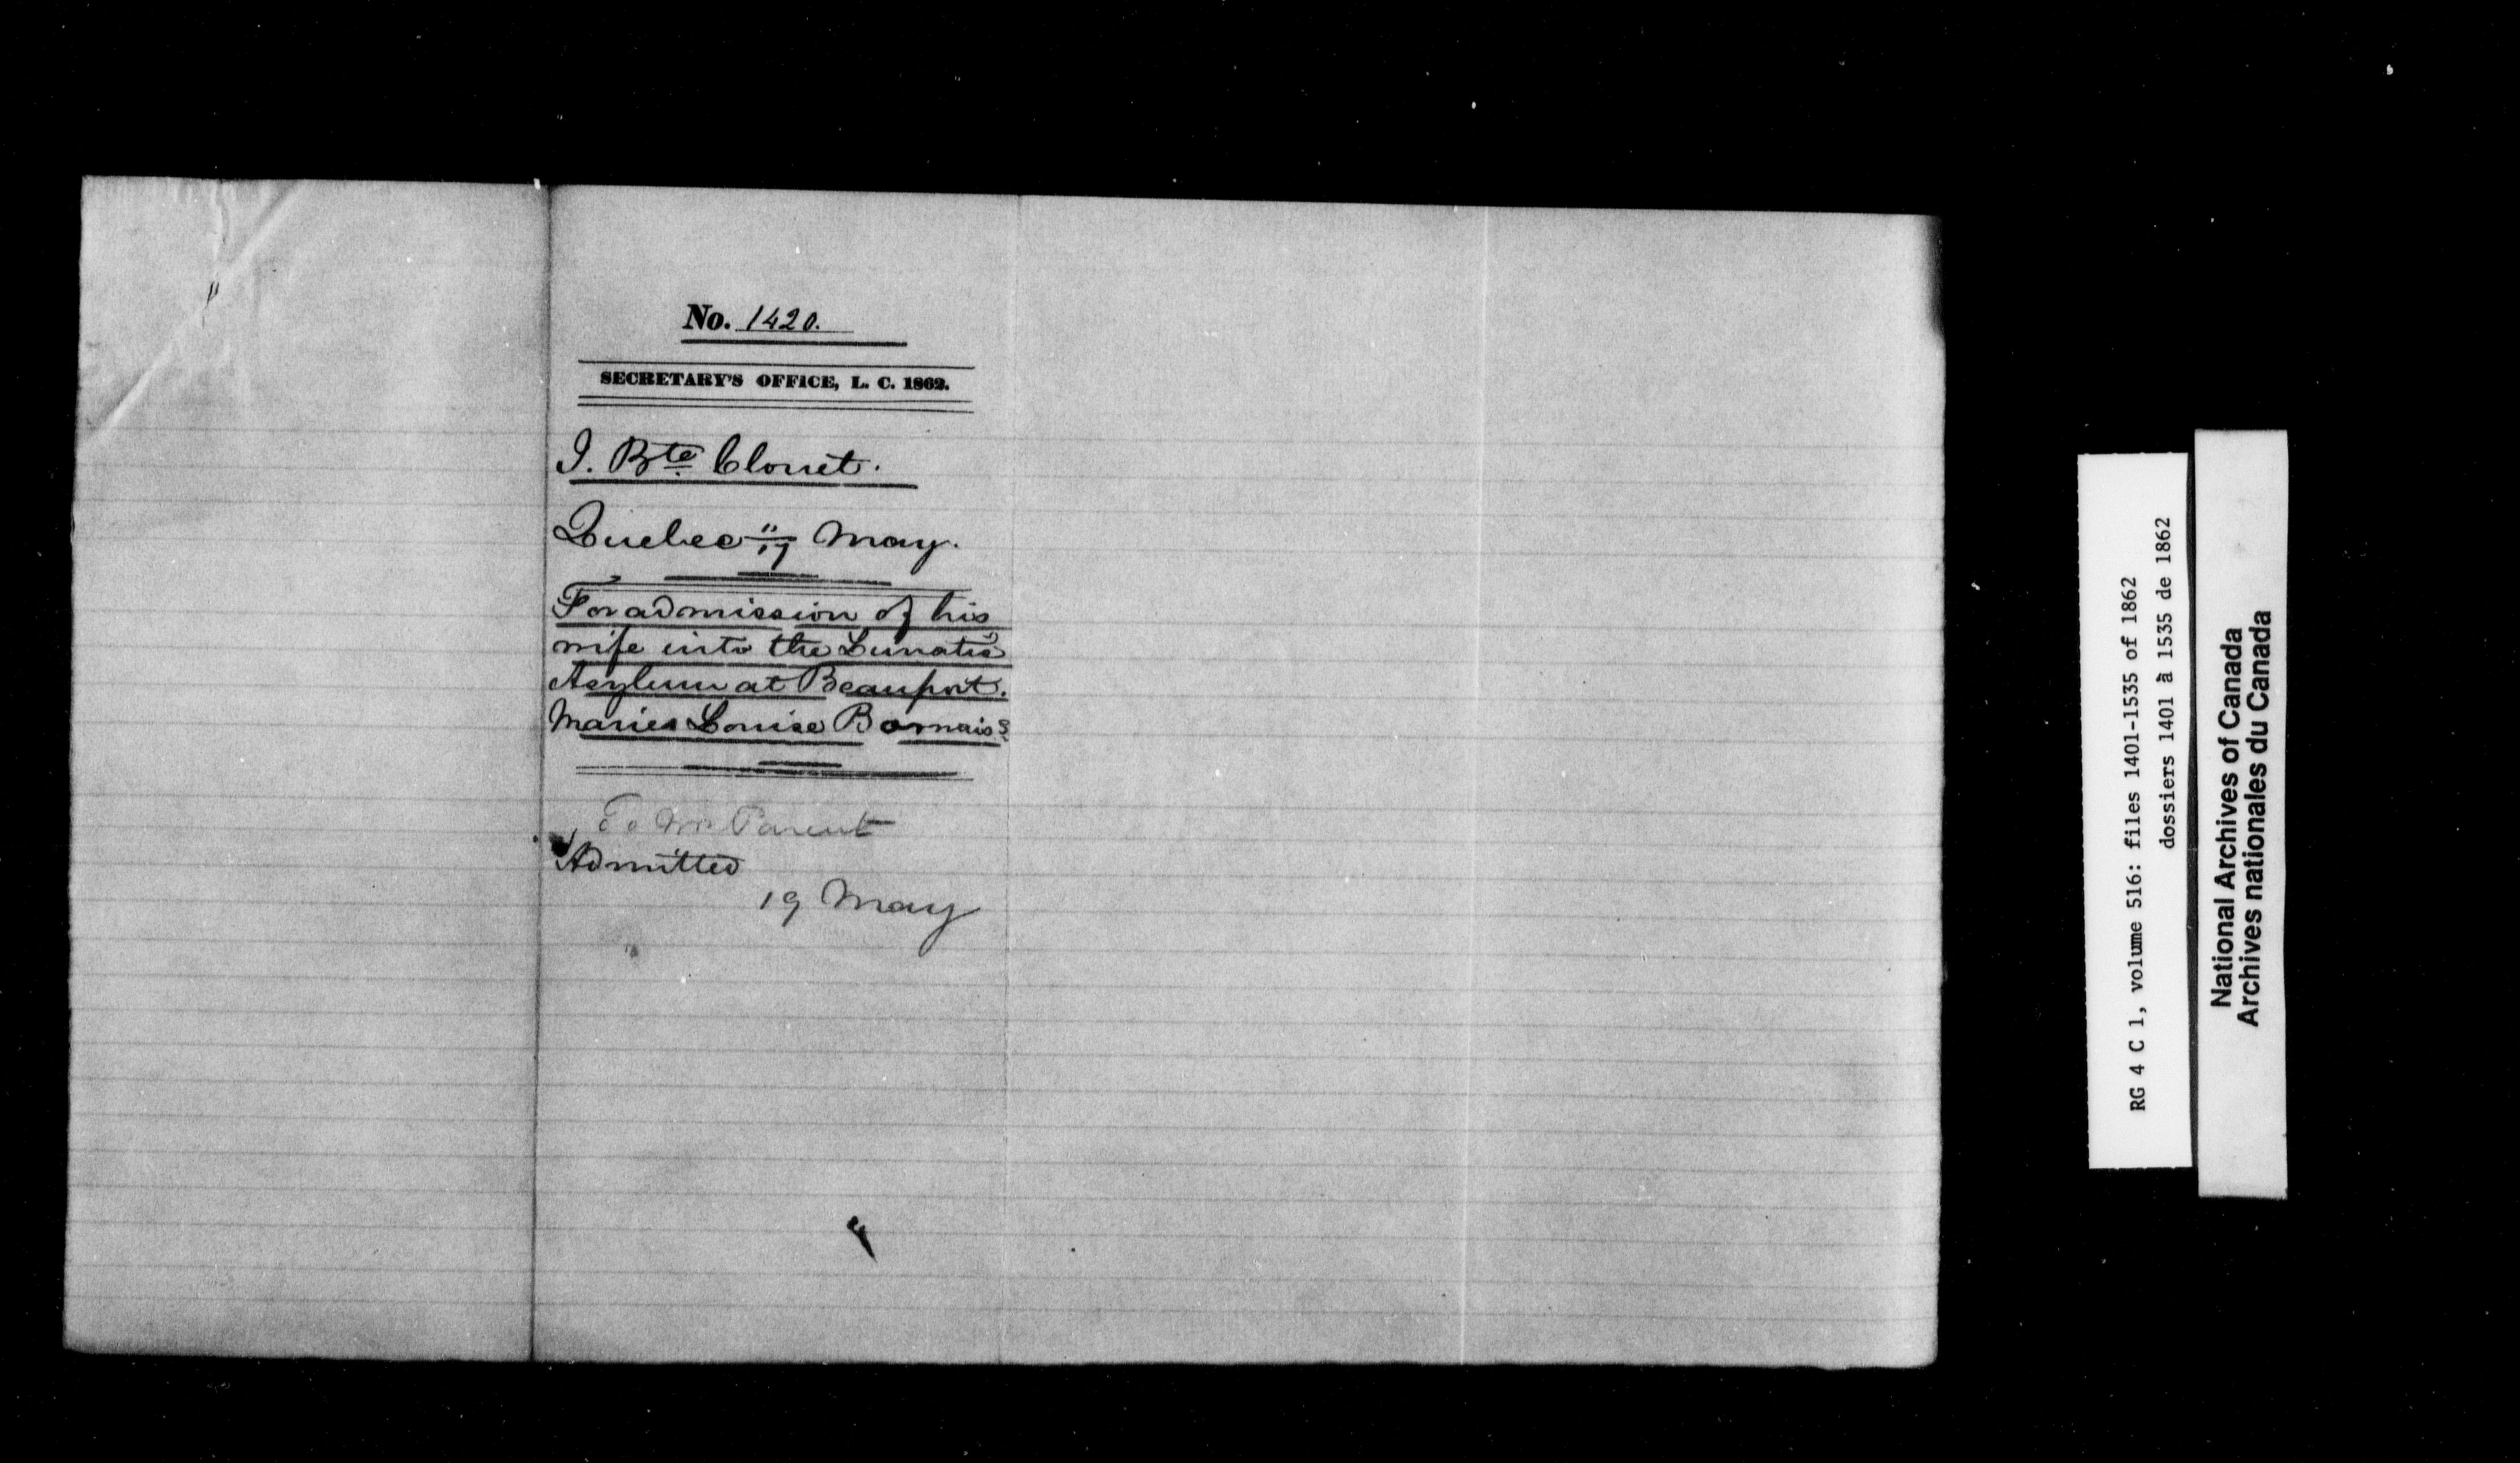 No. 1420.
SECRETARY'S OFFICE, L. C. 1862.
J. Bte Clouet.
Quebec 17 May.
For admission of his
wife into the Lunatic
Asylum at Beauport.
Marie Louise
To Mr Parent
Admitted
19 May
RG 4 C 1, volume 516: files 1401-1535 of 1862
dossiers 1401 à 1535 de 1862
National Archives of Canada
Archives nationales du Canada